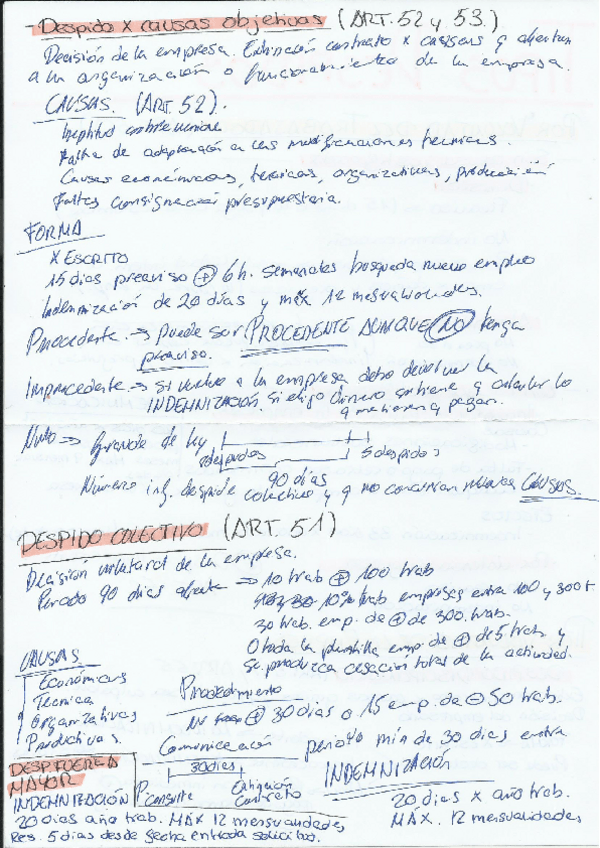 - Despido x causas objetivas (ART. 52 y 53.)
Decisión de la empresa. Extinción contrato x causas q afectan
a la organización o funcionamiento de la empresa.
CAUSAS. (ART. 52).
Ineptitud sobrevenida
Falta de adaptación a las modificaciones técnicas.
Causas económicas, técnicas, organizativas, producción
Faltas consignación presupuestaria.
FORMA
X ESCRITO
15 días preaviso + 6h. semanales busqueda nuevo empleo
Indemnización de 20 días y máx 12 mensualidades.
Procedente → Puede ser PROCEDENTE AUNQUE NO tenga
preaviso.
Improcedente → Si vuelve a la empresa debo devolver la
INDEMNIZACIÓN. Si elijo dinero q calcular lo
q me tienen q pagar.
Nulo → fraude de ley
despidos 5 despidos
90 días
Número inf. despide colectivo y q no concurran nuevas CAUSAS.
DESPIDO COLECTIVO (ART. 51)
Decisión unilateral de la empresa.
Periodo 90 días afecta → 10 trab + 100 trab
10% trab. empresas entre 100 y 300 t.
30 trab. emp. de + de 300. trab.
O toda la plantilla emp. de + de 5 trab. y
se produzca cesación total de la actividad.
CAUSAS.
Económicas
Técnica
Organizativas
Productivas.
Procedimiento
+ 30 días o 15 emp. de - 50 trab.
Comunicación periodo mín de 30 días entre
30 días
P. consulta Extinción Contrato
INDEMNIZACIÓN
20 días x año trab.
MÁX. 12 mensualidades
DESP FUERZA
MAYOR
INDEMNIZACIÓN
20 días año trab. MÁX 12 mensualidades
Res. 5 días desde fecha entrada solicitud.